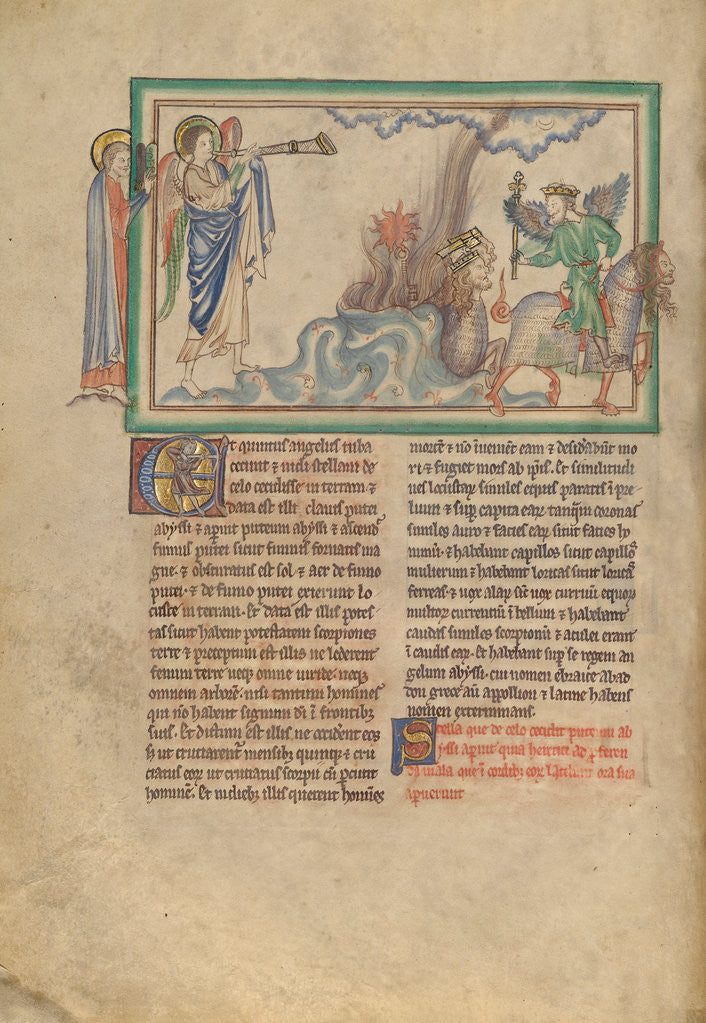 Et quintus angelus tuba
cecinit ⁊ uidi stellam de
celo cecidisse in terram ⁊
data est illi clauis putei
abyssi ⁊ aperuit puteum abyssi ⁊ ascend̛
fumus putei sicut fumus fornacis ma
gne. ⁊ obscuratus est sol ⁊ aer de fumo
putei. ⁊ de fumo putei exierunt lo
custe in terram. Et data est illis potes
tas sicut habent potestatem scorpiones
terre ⁊ preceptum est illis ne lederent
fenum terre neq̨ omne uiride. neq̨
omnem arborē. nisi tantum homines
qui nō habent signum dī ī frontibȝ
suis. Et dictum est illis ne occiderent eos
sȝ ut cruciarent᷑ mensibȝ quinq̨ ⁊ cru
ciatus eoꝝ ut cruciatus scorpii cū ꝑcutit
hominē. Et in diebȝ illis querent homīes
mortē ⁊ nō īuenient eam ⁊ desid̛abūt mo
ri ⁊ fugiet mors ab ip̄is. Et similitudi
nes locustaꝝ similes equis paratis ī pre
lium ⁊ sup̱ capita eaꝝ tanq̄m coronas
similes auro ⁊ facies eaꝝ sicut facies ho
minū. ⁊ habebant capillos sicut capillos
mulierum ⁊ habebant loricas sicut loricas
ferreas. ⁊ uox alaꝝ sic̄ uox curruum equoꝝ
multoꝝ currentiū ī bellum ⁊ habebant
caudas similes scorpionū ⁊ aculei erant
ī caudis eaꝝ. Et habebant sup̱ se regem an
gelum abyssi. cui nomen ebraice abad
don grece aū appollion ⁊ latine habens
nomen exterminans.
Stella que de celo cecidit puteum ab
yssi aperuit quia heretici ad ꝓferen
da mala que ī cordibȝ eoꝝ ora sua
aperuerunt